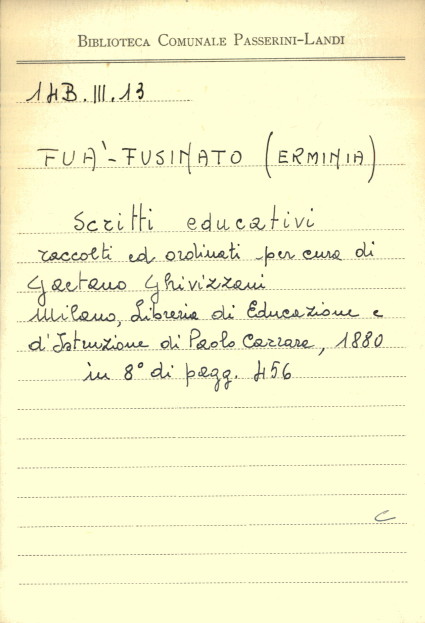 BIBLIOTECA COMUNALE PASSERINI-LANDI
14B.III.13
FUA'-FUSINATO (ERMINIA)
Scritti educativi
raccolti ed ordinati per cura di
Gaetano Ghivizzani
Milano, Libreria di Educazione e
d'Istruzione di Paolo Carrara, 1880
in 8° di pagg. 456
C